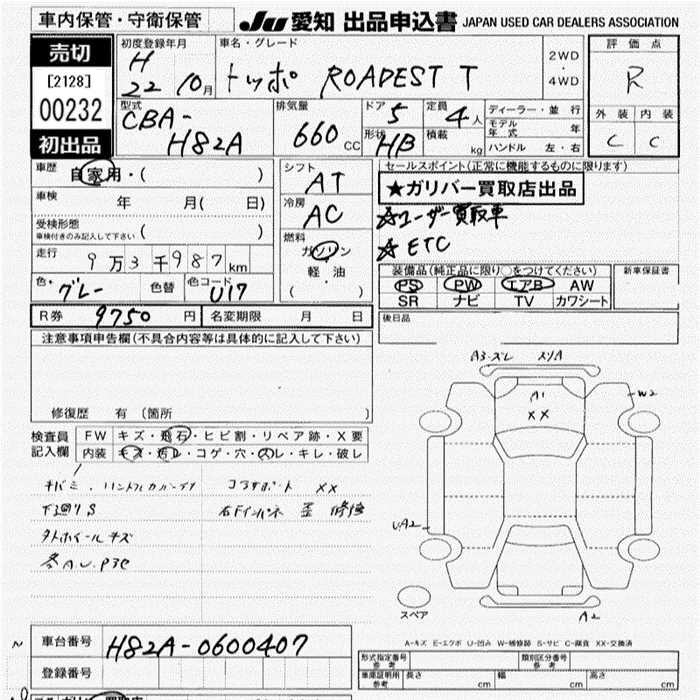 車内保管・守衛保管
JU 愛知 出品申込書 JAPAN USED CAR DEALERS ASSOCIATION
売切
[2128]
00232
初出品
初度登録年月
H
22 10月
車名・グレード
トッポ ROADEST T
2WD
・
4WD
評価点
R
外装 内装
C C
型式
CBA-
H82A
排気量
660 CC
ドア 5
形状 HB
定員 4人
積載 kg
ディーラー・並行
モデル年式 年
ハンドル 左・右
車歴 自家用・( )
車検 年 月( 日)
受検形態
車検付きのみ記入して下さい ( )
走行 9万3千987km
色・グレー 色替 色コード U17
シフト AT
冷房 AC
燃料
ガソリン
軽油
( ・ )
セールスポイント(正常に機能するものに限ります)
★ガリバー買取店出品
☆ユーザー買取車
☆ETC
装備品(純正品に限り○をつけてください)
PS PW エアB AW
SR ナビ TV カワシート
新車保証書
後日品
R券 9750円 名変期限 月 日
注意事項申告欄(不具合内容等は具体的に記入して下さい)
修復歴 有(箇所 )
検査員
記入欄
FW キズ・飛石・ヒビ割・リペア跡・X要
内装 キズ・汚レ・コゲ・穴・スレ・キレ・破レ
キバミ
コアサポート XX
下回りS
右Fインパネ 歪 修優
外ホイールキズ
各AU.P3C
A3-ズレ スリA
A1
XX
W2
U.A2
A2
スペア
A-キズ E-エクボ U-凹み W-補修跡 S-サビ C-腐食 XX-交換済
車台番号 H82A-0600407
登録番号
型式指定番号
参考
類別区分番号
参考
車庫証明用
参考
長さ cm 幅 cm 高さ cm